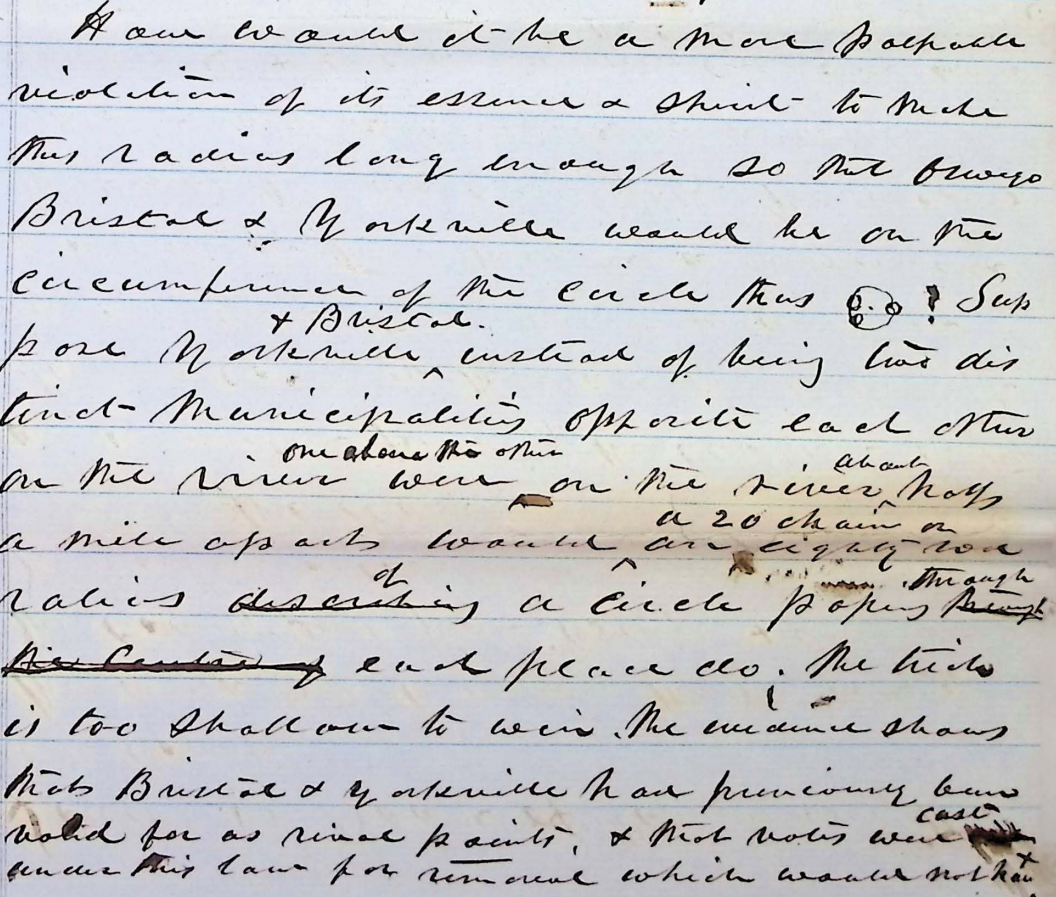 How would it be a more palpable
violation of its essence & spirit to make
this radius long enough so that Oswego
Bristol & Yorkville would be on the
circumference of the circle thus ? Sup
& Bristol.
pose Yorkville instead of being two dis
tinct Municipalities opposite each other
one above the other about
on the river were on the river half
a 20 chain or
a mile apart would an eighty rod
of through
radius describing a circle passing through
the Centre of each place do. The trick
is too shallow to win. The evidence shows
that Bristol & Yorkville had previously been
cast
voted for as rival points, & that votes were
under this law for removal which would not have